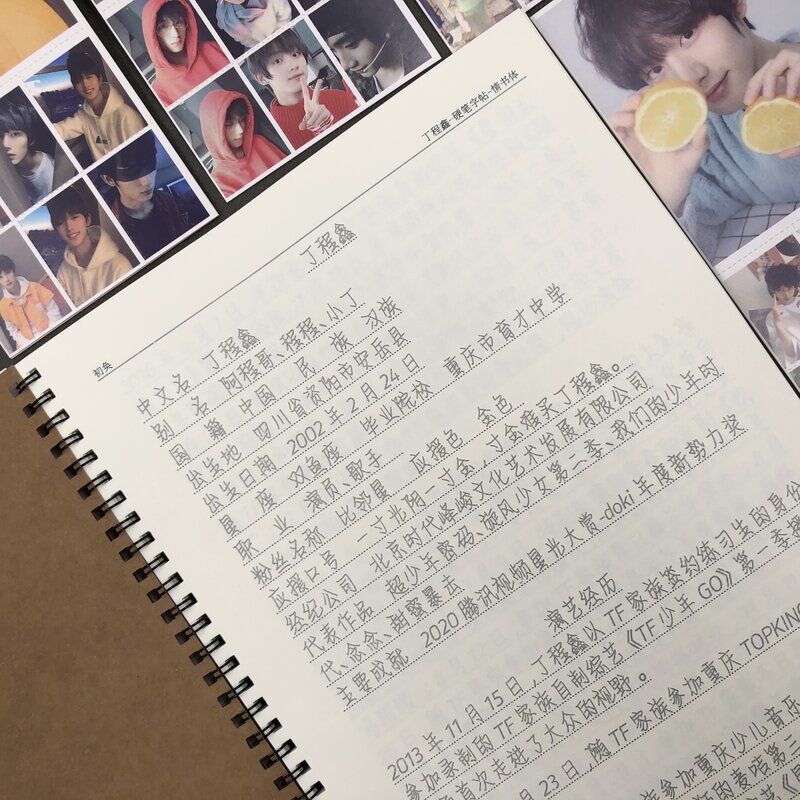 丁程鑫-硬笔字帖-情书体
初奂
丁程鑫
中文名 丁程鑫
别 名 阿程哥、程程、小丁
国 籍 中国 民 族 汉族
出生地 四川省资阳市安乐县
出生日期 2002年2月24日
星 座 双鱼座 毕业院校 重庆市育才中学
职 业 演员、歌手
粉丝名称 比邻星 应援色 金色
应援口号 一寸光阴一寸金,寸金难买丁程鑫。
经纪公司 北京时代峰峻文化艺术发展有限公司
代表作品 超少年密码、旋风少女第二季、我们的少年时
代、念念、甜蜜暴击
主要成就 2020腾讯视频星光大赏-doki年度新势力奖
演艺经历
2013年11月15日,丁程鑫以TF家族签约练习生的身份
参加录制的TF家族自制综艺《TF少年GO》第一季播
首次走进了大众的视野。
月23日,随TF家族参加重庆TOPKING
参加重庆少儿音乐